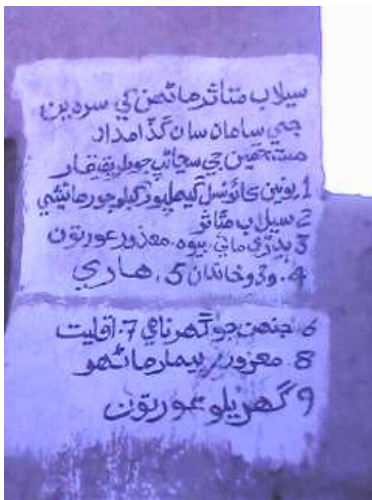 سيلاب متاثر ماڻهن کي سردين
جي سامان سان گڏ امداد
مستحقين جي سڃاڻپ جو طريقيڪار
1. يونين ڪائونسل کيمل پور گبلو جو رهائشي
2 سيلاب متاثر
3 ٻڍڙي مائي، بيوه، معذور عورتون
4. وڏو خاندان 5. هاري
6 جنهن جو گهر ناهي 7. اقليت
8. معزور/بيمار ماڻهو
9 گهريلو عورتون